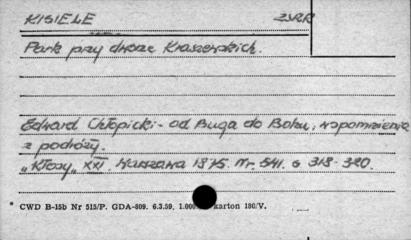 KISIELE ZSRR
Park przy dworze Kraszewskich.
Edward Chłopicki - od Buga do Bohu, wspomnienia
z podróży.
"Kłosy" XXI. Warszawa 1875. Nr. 541. s 318-320.
CWD B-15b Nr 515/P. GDA-809. 6.3.59. 1.000 karton 180/V.